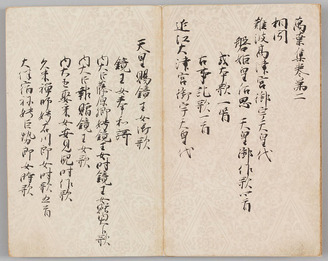 萬葉集巻第二
相聞
難波高津宮御宇天皇代
磐姫皇后思天皇御作歌四首
或本歌一首
古事記歌一首
近江大津宮御宇天皇代
天皇賜鏡王女御歌
鏡王女奉和謌
内大臣藤原卿娉鏡王女時鏡王女贈歌
内大臣報贈鏡王女歌
内大臣娶采女安見児時作歌
久米禅師娉石川郎女時歌五首
大伴宿祢娉巨勢郎女時歌